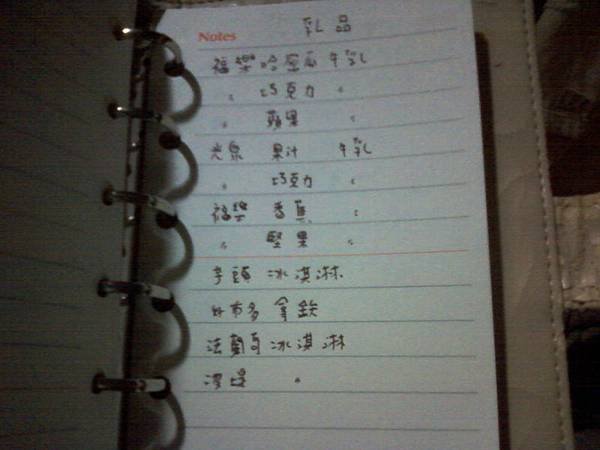 Notes 乳品
福樂哈蜜瓜牛乳
〃 巧克力 〃
〃 蘋果 〃
光泉 果汁 牛乳
〃 巧克力 〃
福樂 香蕉 〃
〃 堅果 〃
芋頭 冰淇淋
好市多 拿鉄
法蘭哥 冰淇淋
〃